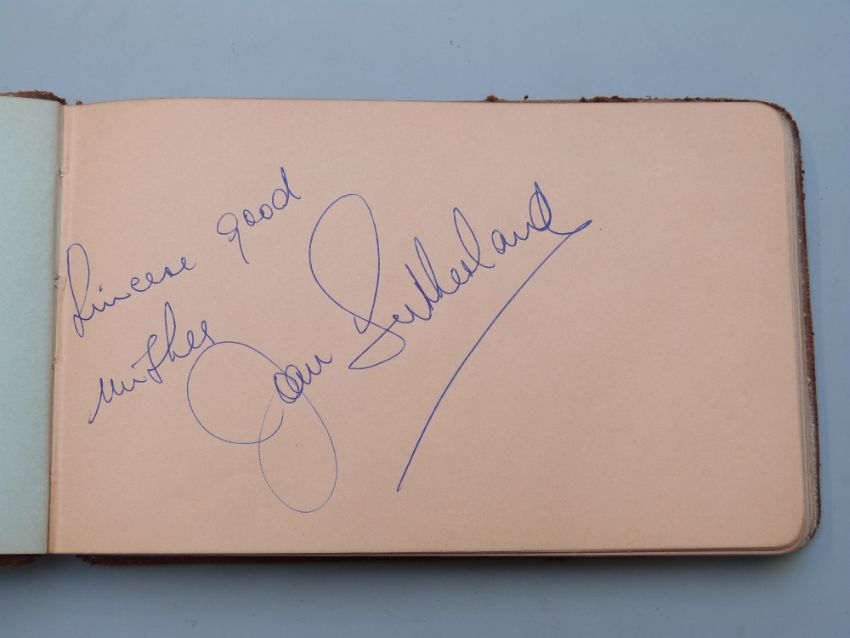 Sincere good
wishes
Joan Sutherland